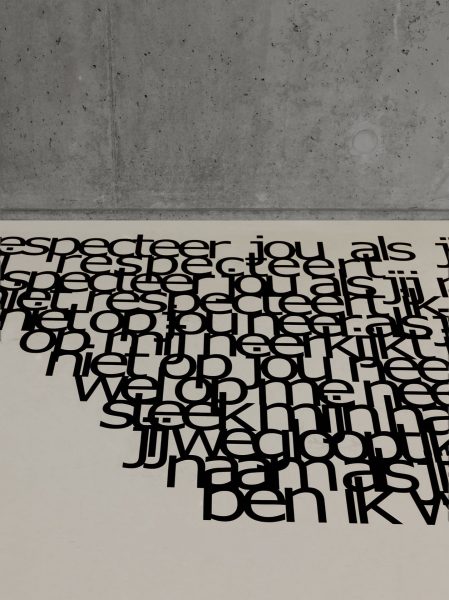 especteer jou als ji
respecteert
specteer jou als jij n
niet respecteert ik
niet op jou neer als
op mij neerkijkt
niet op jou nee
wel op me nee
steek mijn ha
jij wegloopt ik
naam als j
ben ik w